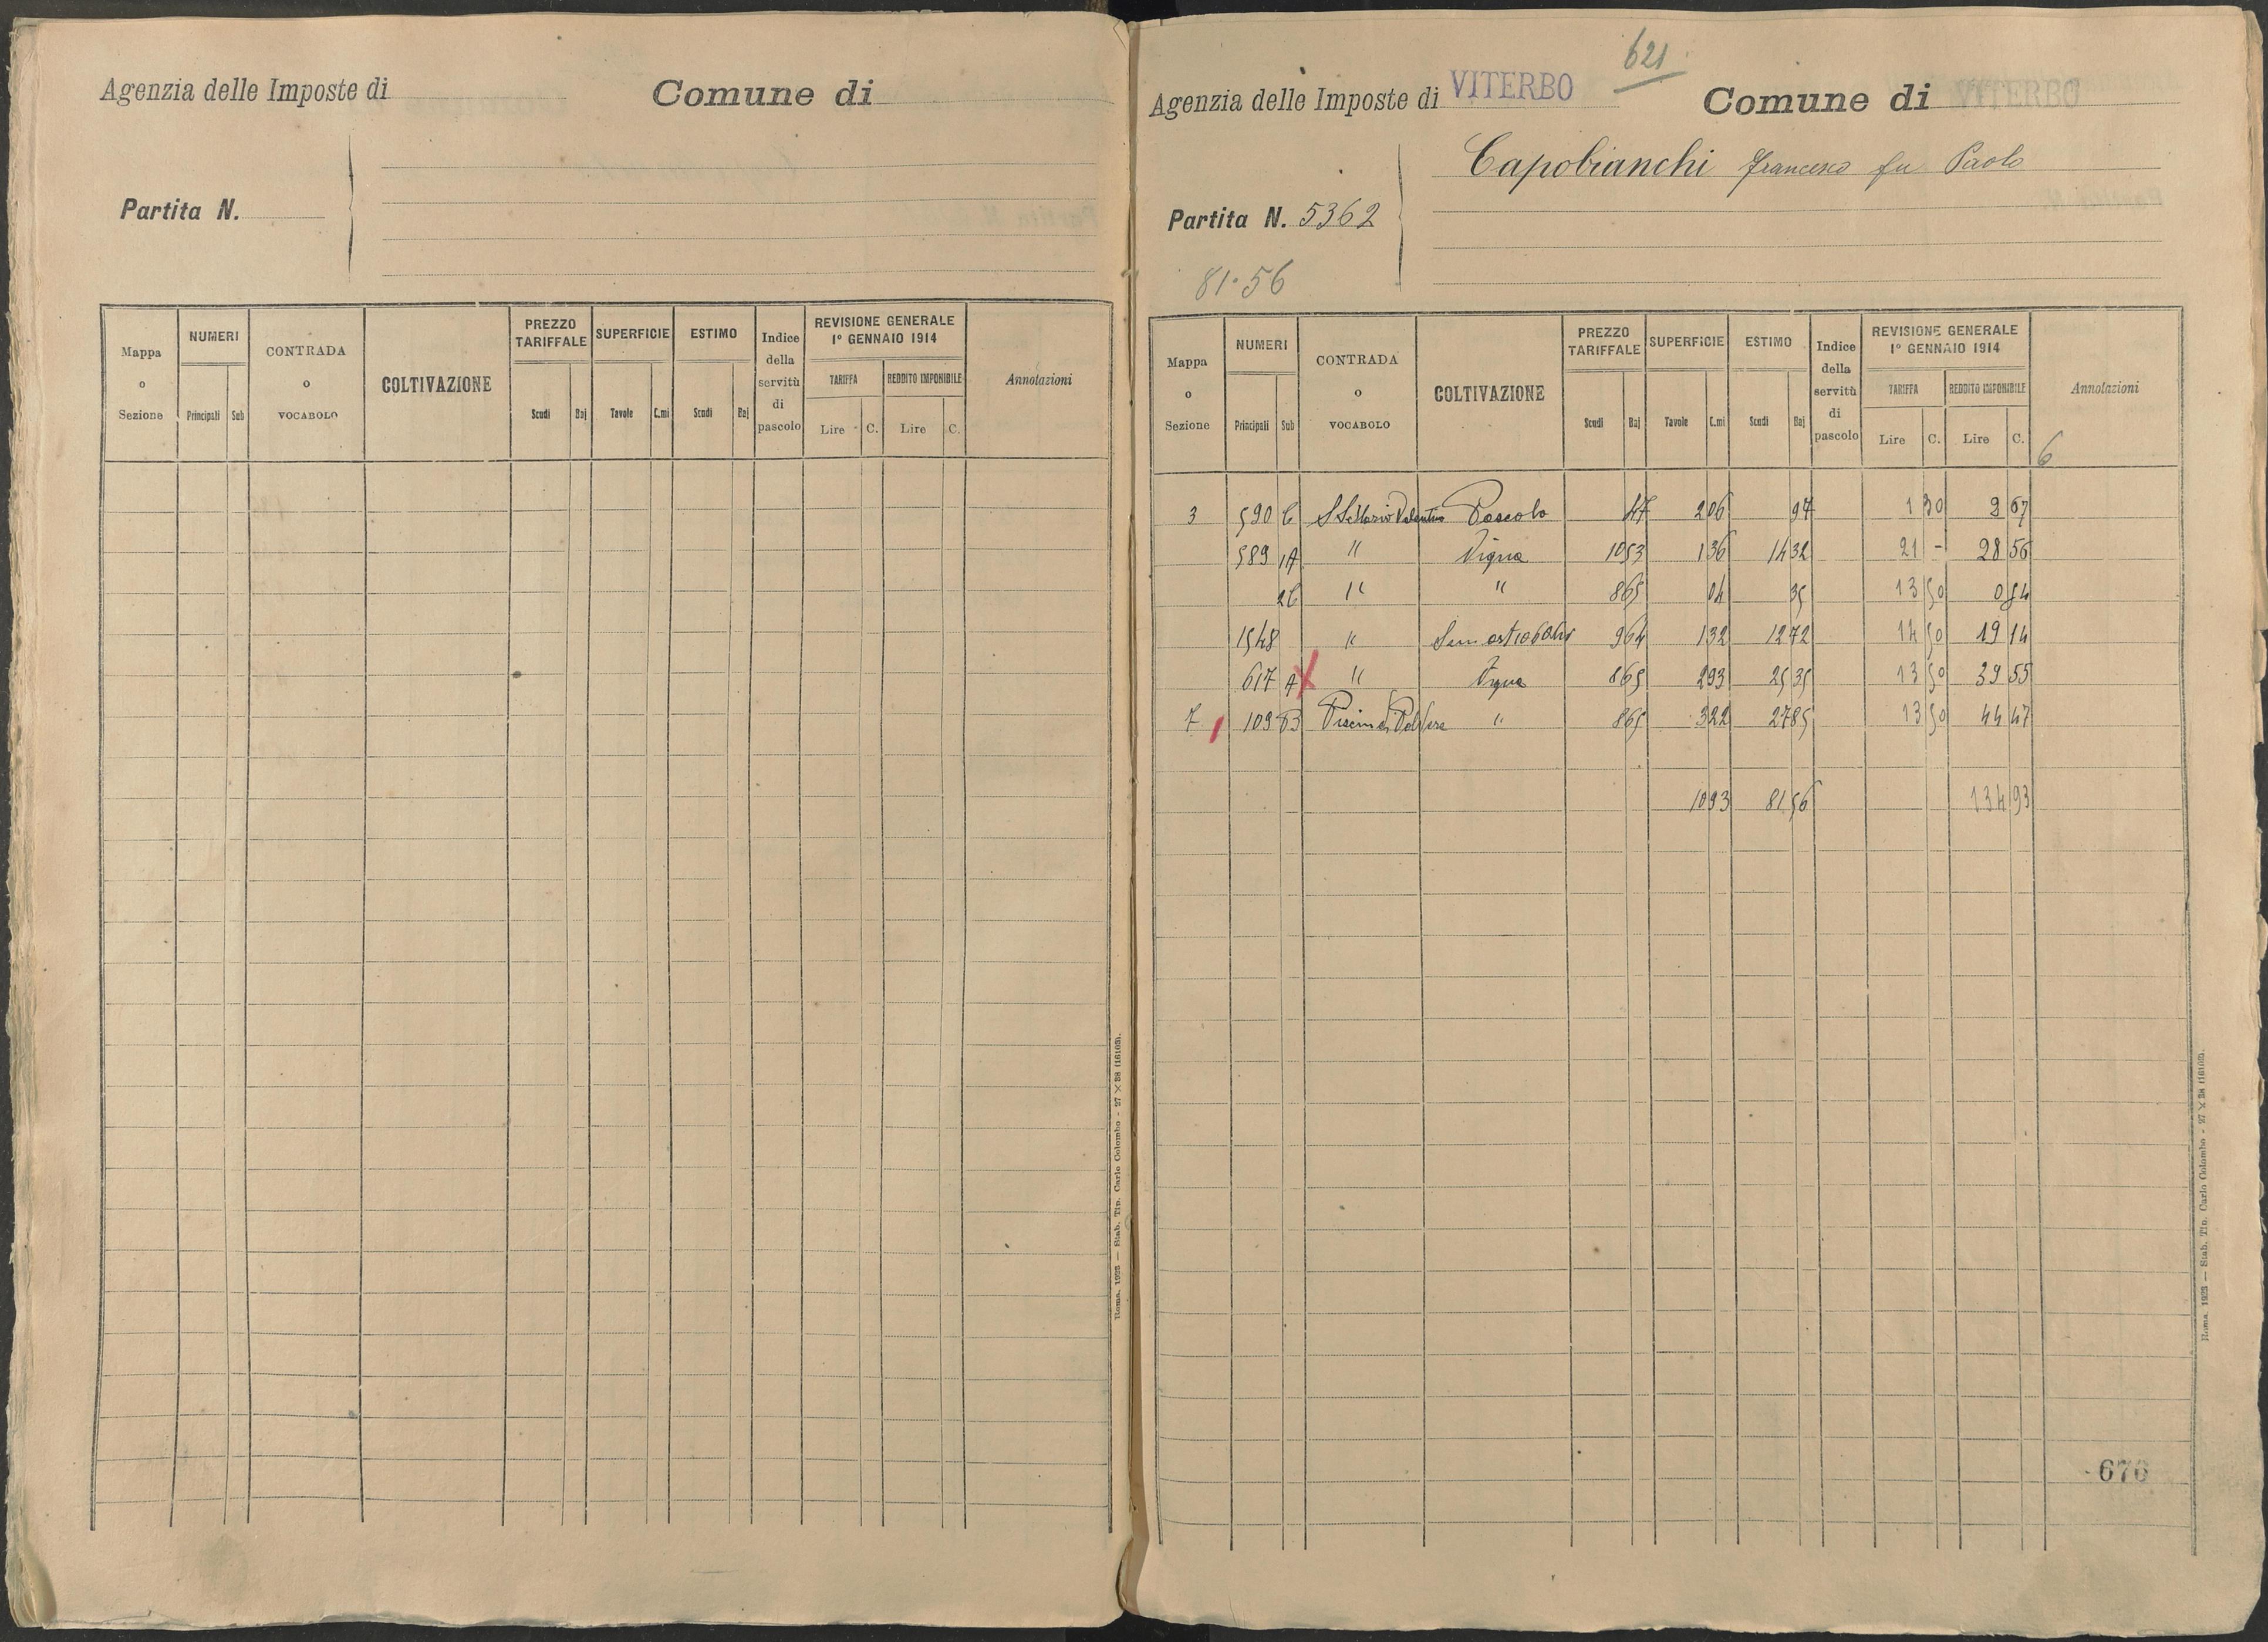 Agenzia delle Imposte di
Comune di
Partita N.
Mappa o Sezione | NUMERI Principali Sub | CONTRADA o VOCABOLO | COLTIVAZIONE | PREZZO TARIFFALE Scudi Baj | SUPERFICIE Tavole C.mi | ESTIMO Scudi Baj | Indice della servitù di pascolo | REVISIONE GENERALE 1º GENNAIO 1914 TARIFFA Lire C. REDDITO IMPONIBILE Lire C. | Annotazioni
Roma, 1923 — Stab. Tip. Carlo Colombo - 27 × 38 (16103).
621
Agenzia delle Imposte di VITERBO
Comune di VITERBO
Capobianchi Francesco fu Paolo
Partita N. 5362
81.56
Mappa o Sezione | NUMERI Principali Sub | CONTRADA o VOCABOLO | COLTIVAZIONE | PREZZO TARIFFALE Scudi Baj | SUPERFICIE Tavole C.mi | ESTIMO Scudi Baj | Indice della servitù di pascolo | REVISIONE GENERALE 1º GENNAIO 1914 TARIFFA Lire C. REDDITO IMPONIBILE Lire C. | Annotazioni
6
3 590 C Pascolo 47 2 06 97 1 30 2 67
589 1A " Vigna 10 53 1 36 14 32 21 - 28 56
2C " " 8 65 04 35 13 50 0 54
1548 " 9 64 1 32 12 72 14 50 19 14
617 A " Vigna 8 65 2 93 25 35 13 50 39 55
7 109 B Piscin di Polvere " 8 65 3 22 27 85 13 50 44 47
10 93 81 56 134 93
676
Roma, 1923 — Stab. Tip. Carlo Colombo - 27 × 38 (16103).